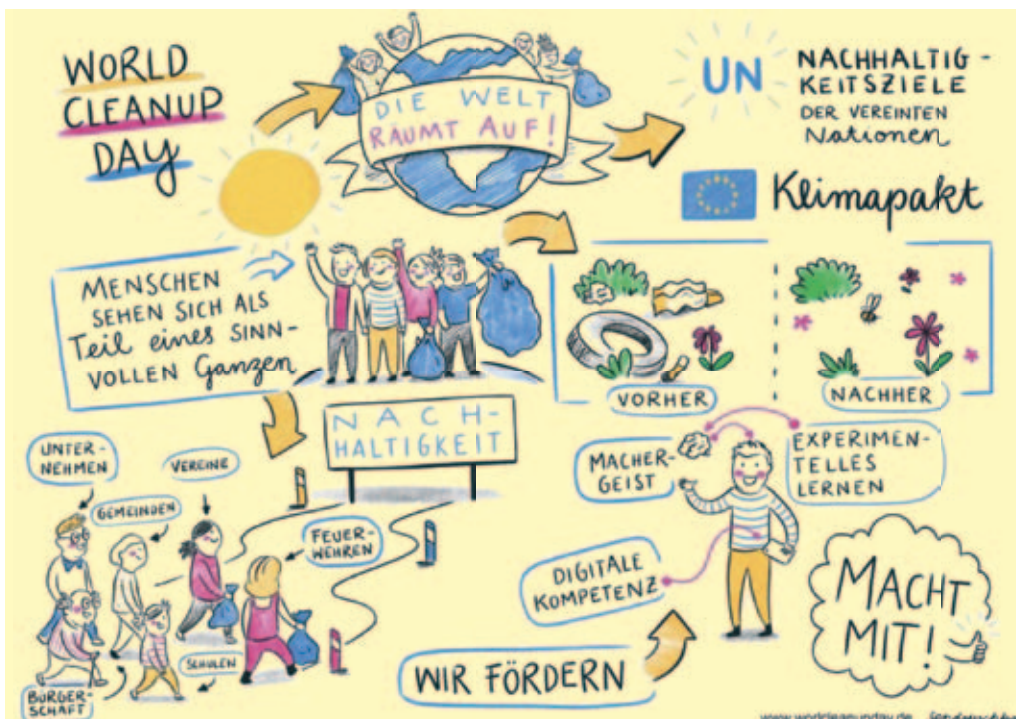 WORLD
CLEANUP
DAY
DIE WELT
RÄUMT AUF!
UN
NACHHALTIG-
KEITSZIELE
DER VEREINTEN
Nationen
Klimapakt
MENSCHEN
SEHEN SICH ALS
Teil eines SINN-
VOLLEN Ganzen
VORHER
NACHHER
NACH-
HALTIGKEIT
UNTER-
NEHMEN
VEREINE
GEMEINDEN
FEUER-
WEHREN
SCHULEN
BÜRGER-
SCHAFT
MACHER-
GEIST
EXPERIMEN-
TELLES
LERNEN
DIGITALE
KOMPETENZ
WIR FÖRDERN
MACHT
MIT!